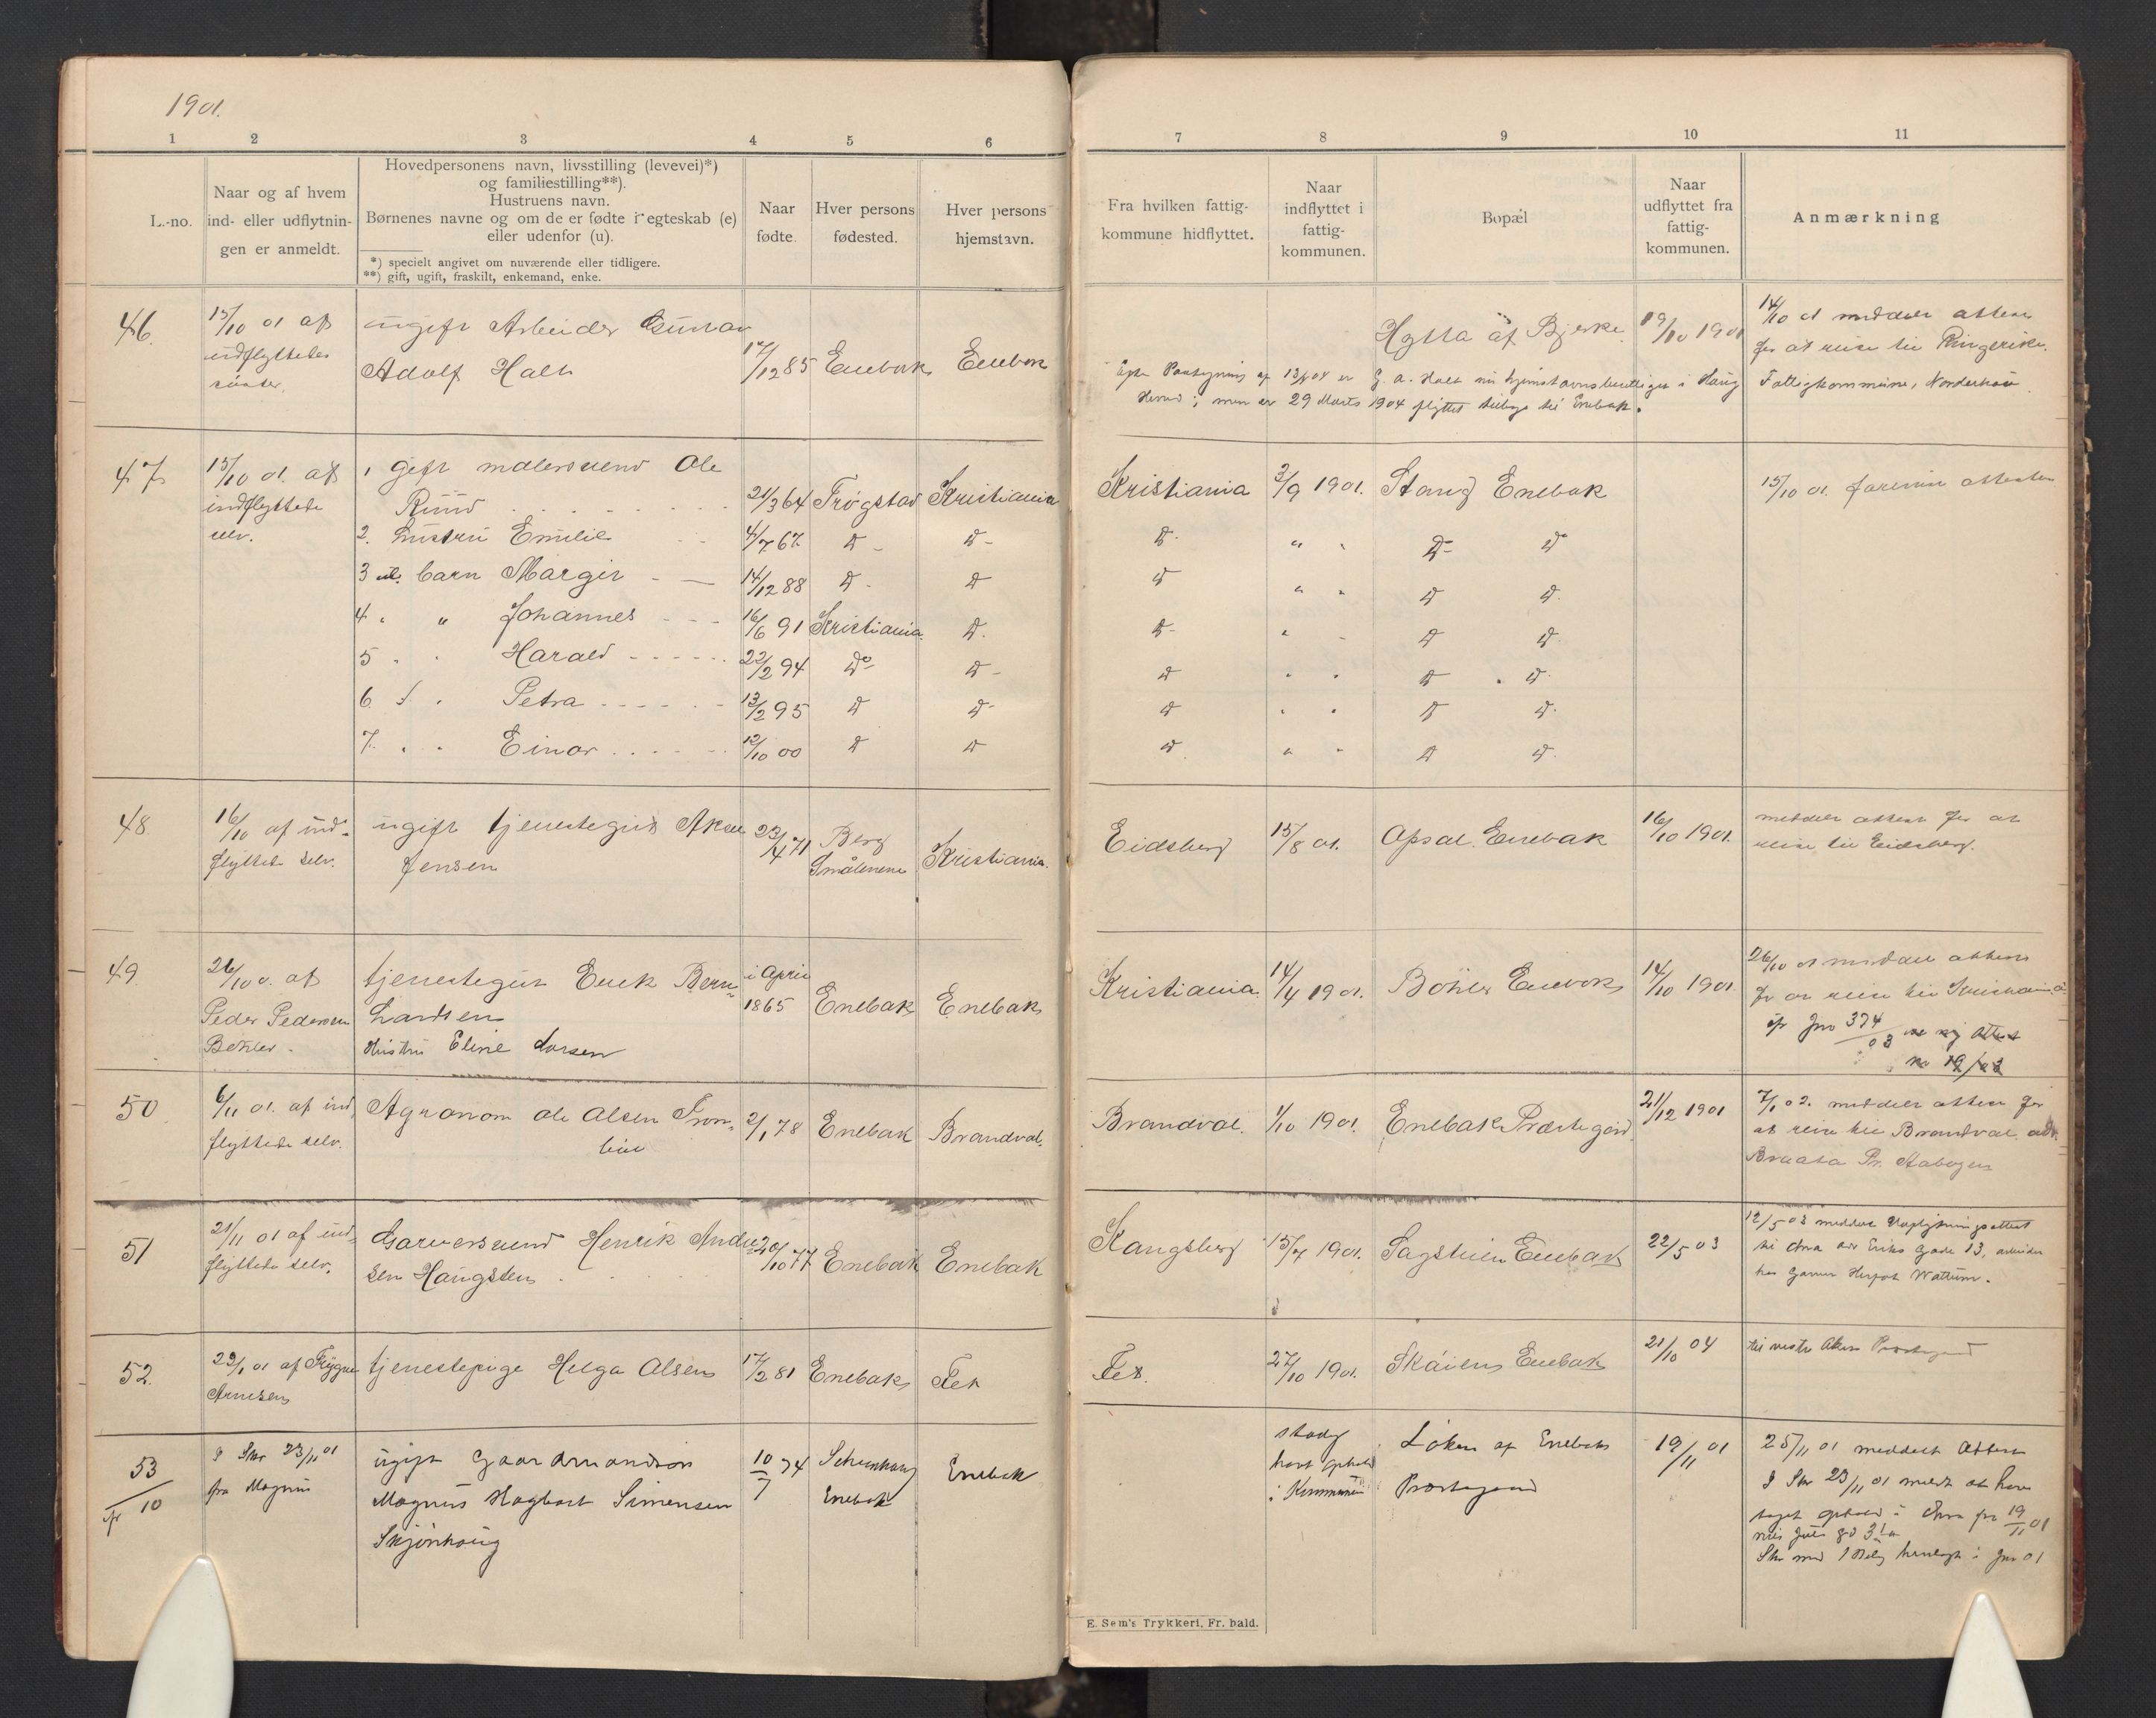 1901.
1 2 3 4 5 6
L.-no.
Naar og af hvem
ind- eller udflytnin-
gen er anmeldt.
Hovedpersonens navn, livsstilling (levevei)*)
og familiestilling**).
Hustruens navn.
Børnenes navne og om de er fødte i egteskab (e)
eller udenfor (u).
*) specielt angivet om nuværende eller tidligere.
**) gift, ugift, fraskilt, enkemand, enke.
Naar
fødte.
Hver persons
fødested.
Hver persons
hjemstavn.
46.
15/10 01 af
indflyttedes
ugift Arbeider Gustav
Adolf Halt
17/12 85 Enebak Enebak
47
15/10 01. af
indflyttede
selv.
1 gift malersvend Ole
Ruud
21/3 64 Trøgstad Kristiania
2. hustru Emilie 4/7 67 Do Do
3 barn Margit 14/12 88 Do Do
4 " " Johannes 16/6 91 Kristiania Do
5 " " Harald 22/2 94 Do Do
6 " " Petra 13/2 95 Do Do
7. " " Einar 12/10 00 Do Do
48
16/10 af ind-
flyttede selv.
ugift tjenestegut
Jensen
23/4 71 Berg
Smålenene
Kristiania
49.
26/10 01. af
Peder Pedersen
Bøhler
tjenestegut
Larsen
Hustru Eline Larsen
i April
1865
Enebak Enebak
50
6/11 01. af ind-
flyttede selv.
Agronom Ole Olsen Tron-
2/1 78 Enebak Brandval.
51
21/11 01 af ind-
flyttede selv.
Garversvend Henrik Andre-
sen Haugsten
20/10 77 Enebak Enebak
52.
29/1 01 af Trygve
Arnesen
tjenestepige Helga Olsen
17/2 81 Enebak Fet
53
10
I Skr 23/11 01
fra Magnus
ugift Gaardmandssøn
Magnus Hagbart Simensen
Skjønhaug
10/7 74
Enebak
Enebak
7 8 9 10 11
Fra hvilken fattig-
kommune hidflyttet.
Naar
indflyttet i
fattig-
kommunen.
Bopæl
Naar
udflyttet fra
fattig-
kommunen.
Anmærkning
Hytta af Bjerke 19/10 1901
14/10 01 meddelt attest
for at reise til Ringerike.
Efter Paategning af 13/4 04 er G. A. Halt nu hjemstavnsberettiget i Haug Fattigkommune, Norderhov
Herred; men er 29 Marts 1904 flyttet tilbage til Enebak.
Kristiania 2/9 1901. Stang Enebak
15/10 01. forevist attesten
Do " " Do Do
Do " " Do Do
Do " " Do Do
Do " " Do Do
Do " " Do Do
Do " " Do Do
Eidsberg 15/8 01. Opsal Enebak 16/10 1901.
meddelt attest for at
reise til Eidsberg.
Kristiania 14/4 1901. Bøhler Enebak 14/10 1901
26/10 01 meddelt attest
for at reise til Kristiania
374
03
Brandval. 1/10 1901. Enebak Prestegård 21/12 1901
7/1 02. meddelt attest for
at reise til Brandval. adr.
Braata Pr. Aabogen
Kongsberg 15/7 1901. Sagstuen Enebak 22/5 03
12/5 03 meddelt
Eriks Gade 13, arbeider
hos Garver
Fet. 27/10 1901. Skåien Enebak 21/10 04
til vestre Aker Prestegjeld
stadig
havt ophold
i Kommunen
Løken af Enebak
Prestegjeld
19/11 01
25/11 01 meddelt attest
I Skr 23/11 01 meldt at have
taget ophold i Chra fra 19/11 01
Skr med 1 Bilag henlagt i Jnr 01
E. Sem's Trykkeri, Fr.hald.